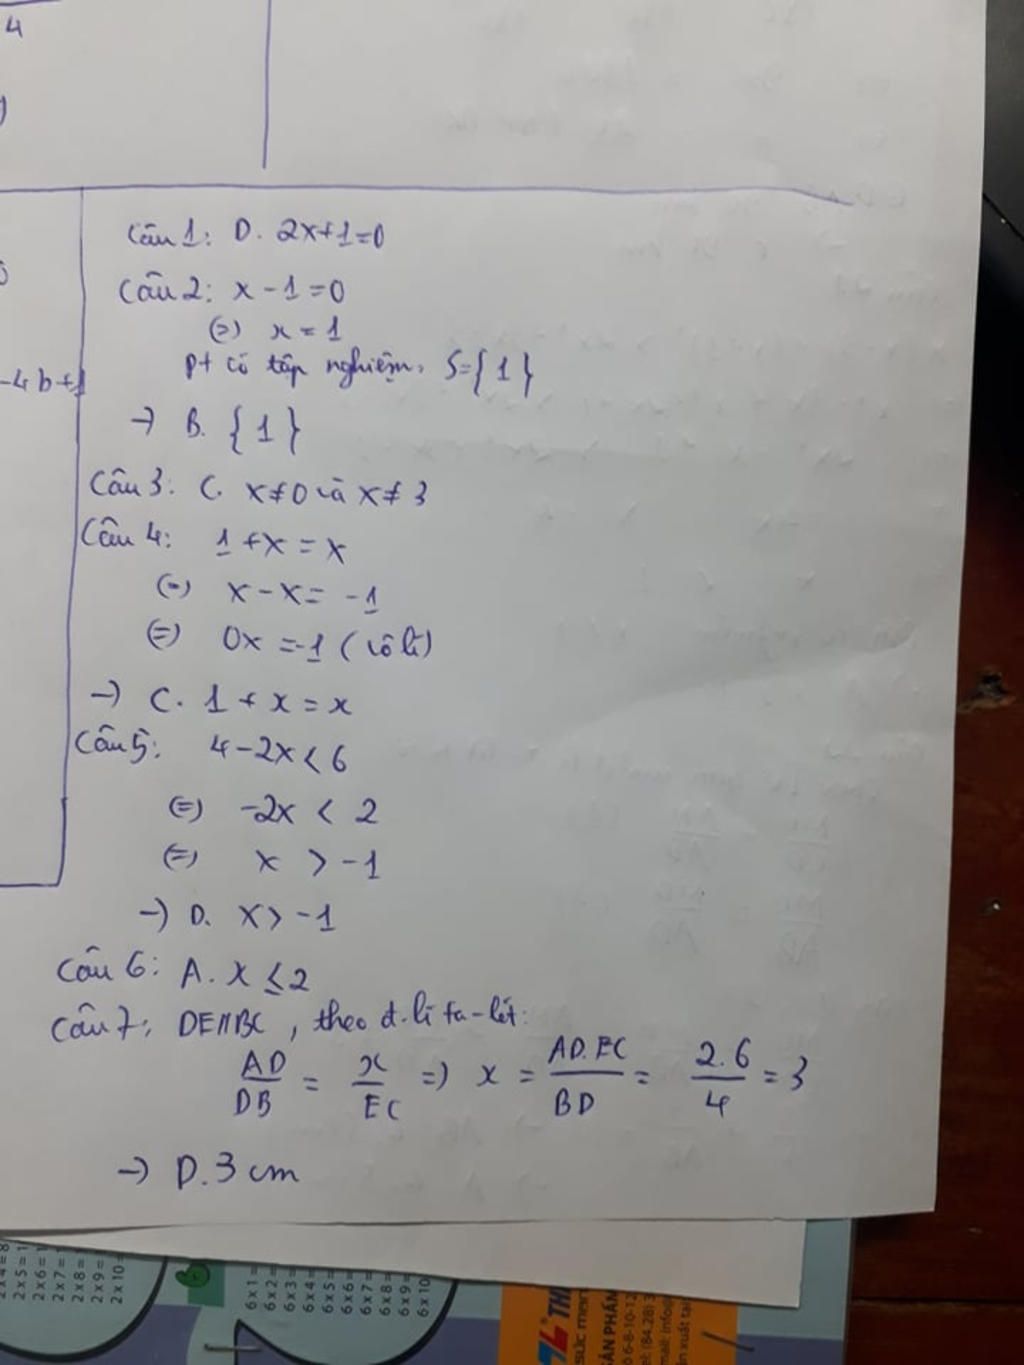 4
-4b+1
Câu 1: D. 2x+1=0
Câu 2: x-1=0
(=) x = 1
pt có tập nghiệm: S={1}
→ B. {1}
Câu 3: C. x≠0 và x≠3
Câu 4: 1+x=x
(=) x-x= -1
(=) 0x =-1 (vô lí)
→ C. 1+x=x
Câu 5: 4-2x<6
(=) -2x < 2
(=) x > -1
→ D. x> -1
Câu 6: A. x ≤ 2
Câu 7: DE//BC, theo đ.lí ta-lét:
AD/DB = x/EC => x = AD.EC/BD = 2.6/4 = 3
→ D. 3 cm
2x5=1
2x6=1
2x7=1
2x8=1
2x9=
2x10=
6x1=
6x2=
6x3=
6x4=
6x5=
6x6=
6x7=
6x8=
6x9=
6x10